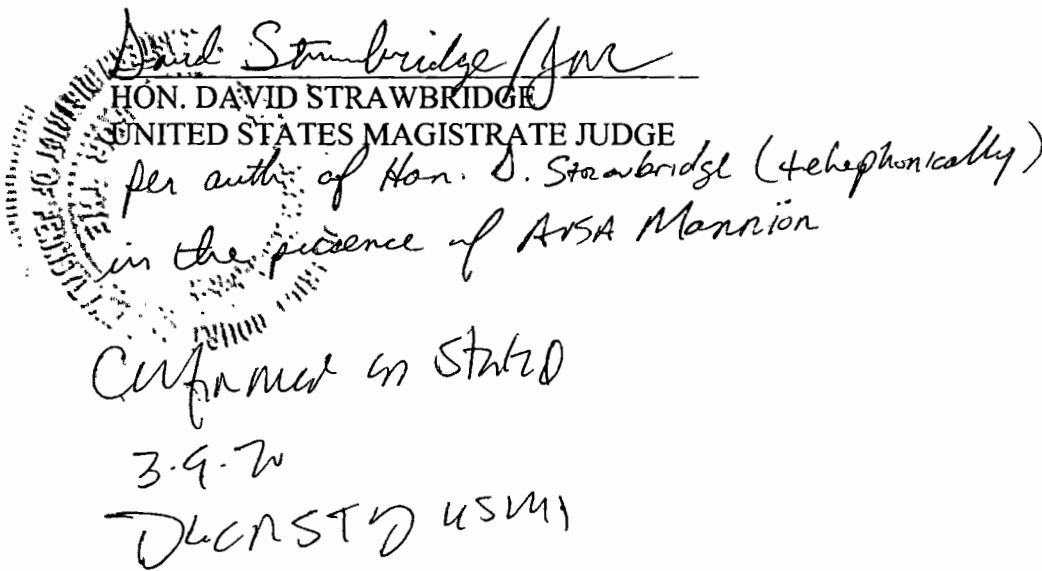 David Strawbridge /
HON. DAVID STRAWBRIDGE
UNITED STATES MAGISTRATE JUDGE
per auth. of Hon. D. Strawbridge (telephonically)
in the presence of AUSA Mannion
Confirmed as stated
3.9.20
USMJ